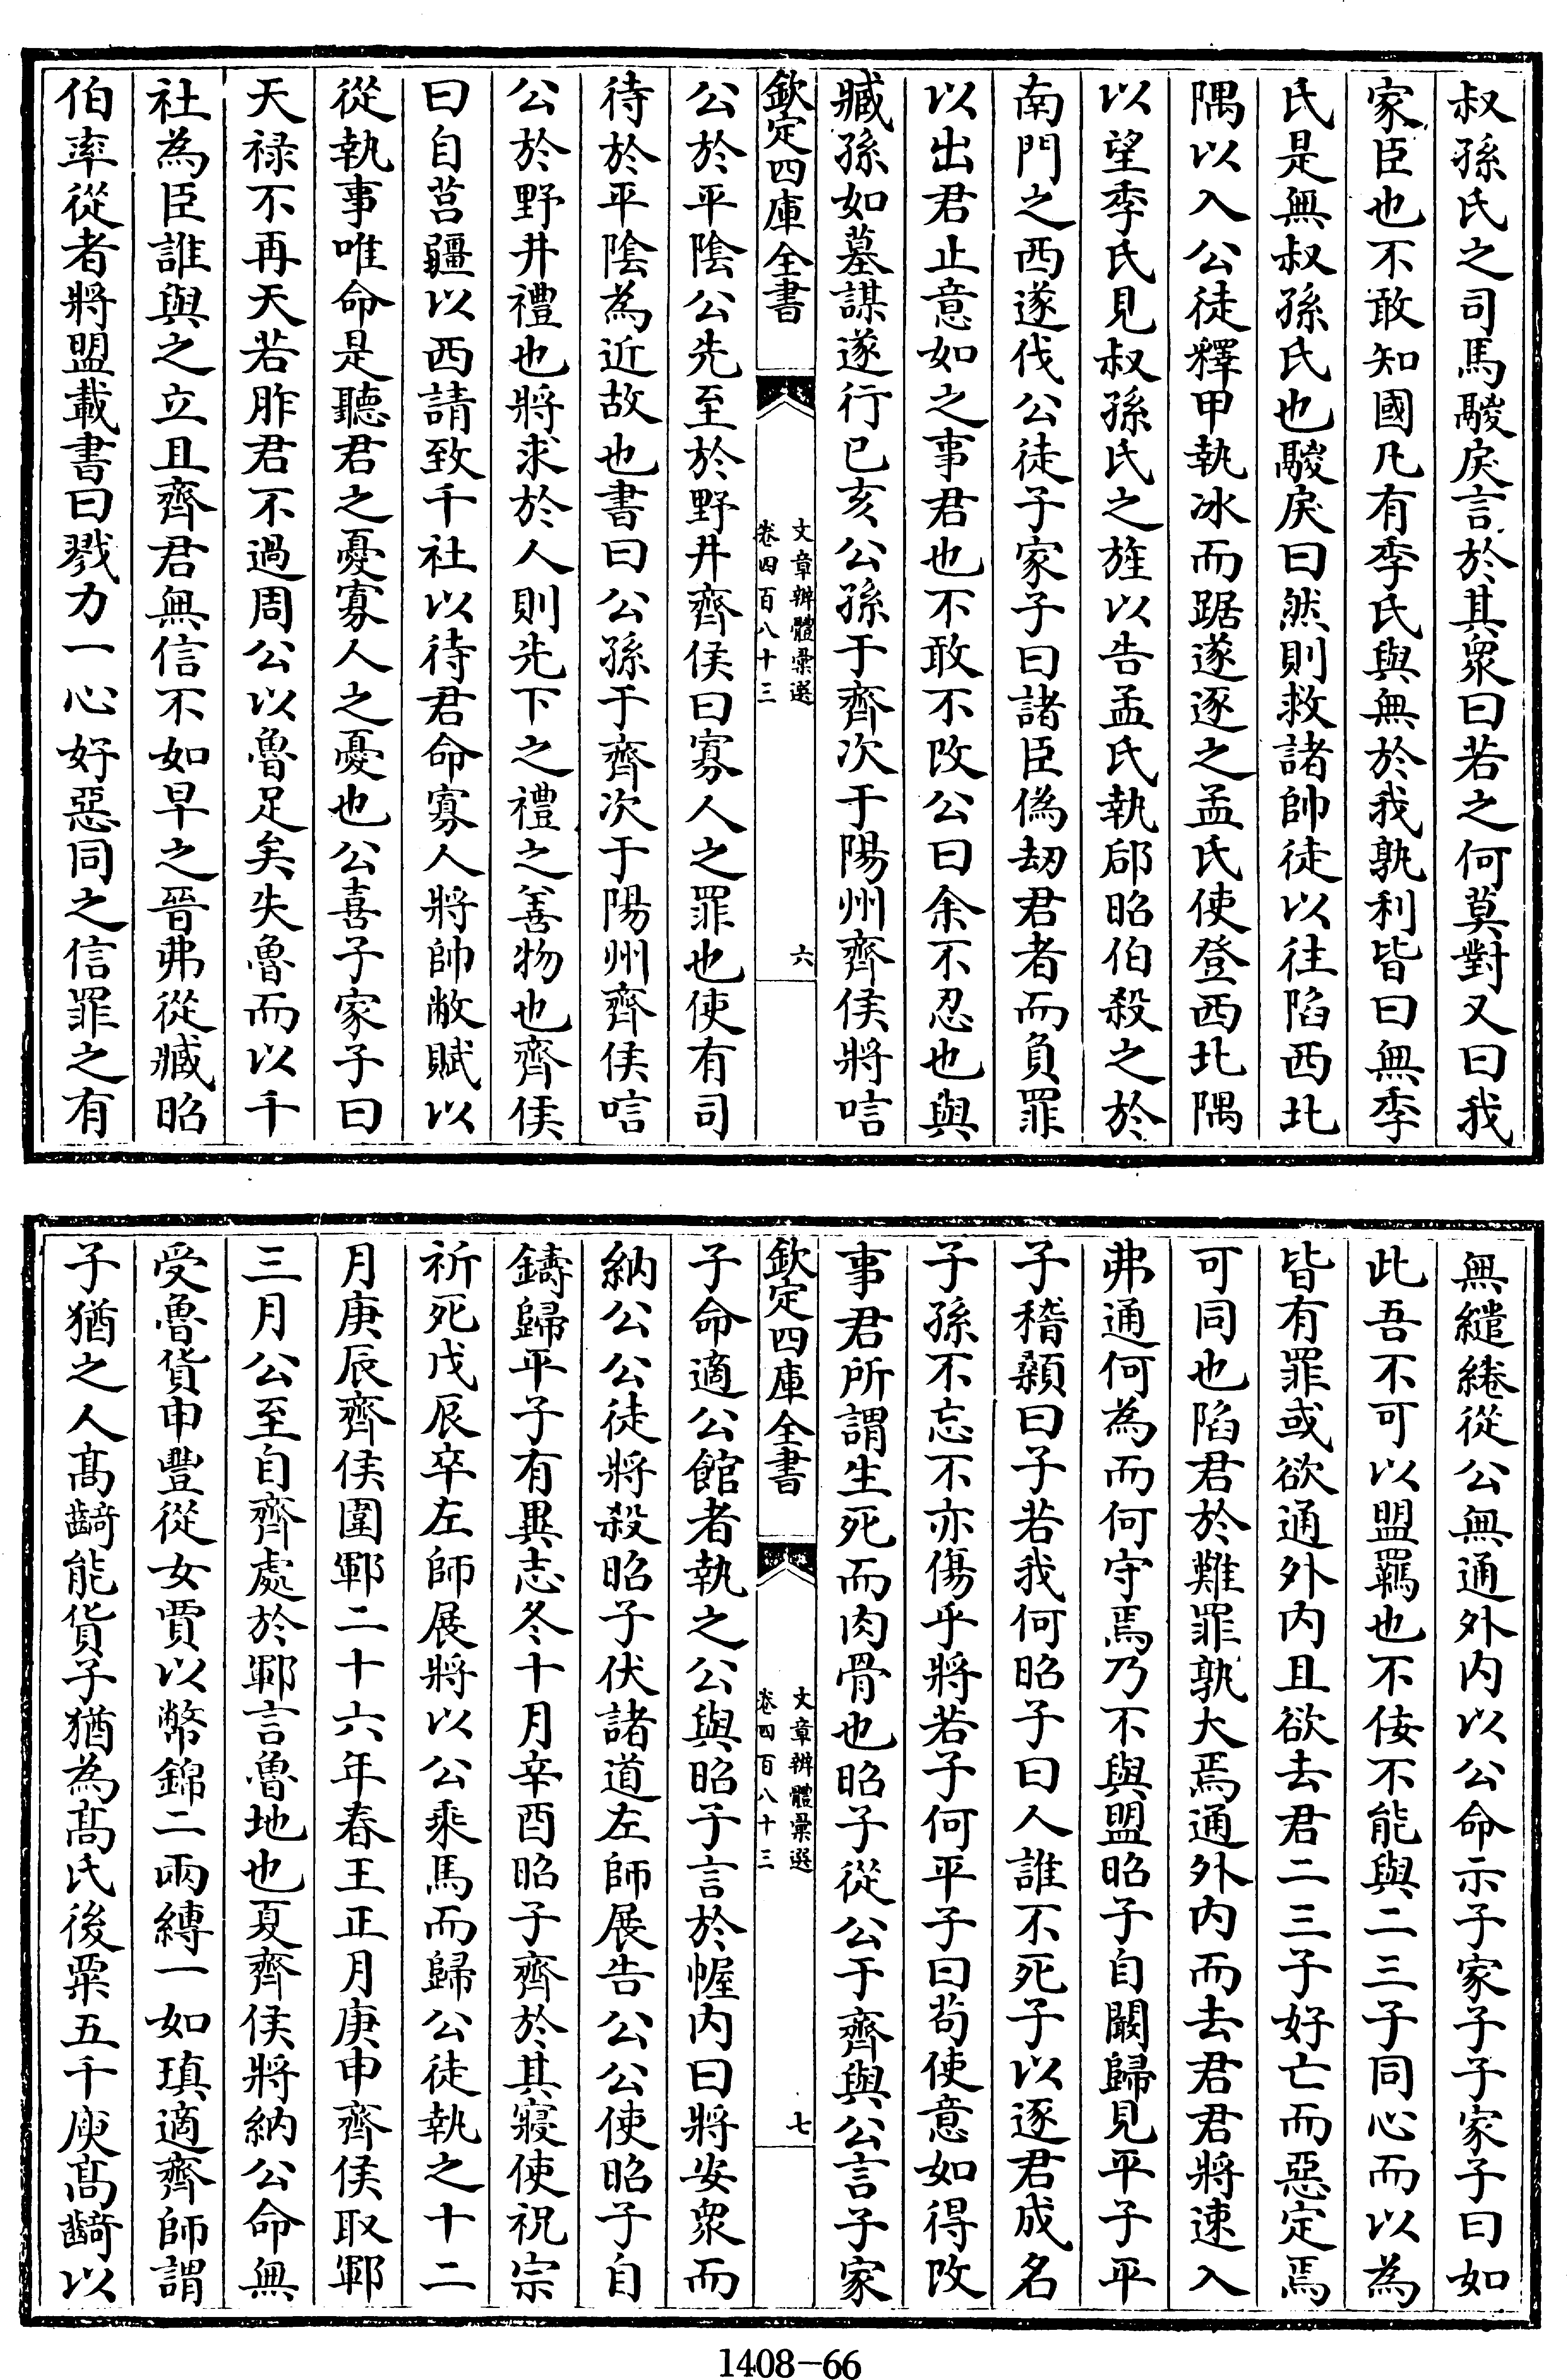 叔孫氏之司馬鬷戾言於其衆曰若之何莫對又曰我
家臣也不敢知國凡有季氏與無於我孰利皆曰無季
氏是無叔孫氏也鬷戾曰然則救諸帥徒以往陷西北
隅以入公徒釋甲執冰而踞遂逐之孟氏使登西北隅
以望季氏見叔孫氏之旌以告孟氏執郈昭伯殺之於
南門之西遂伐公徒子家子曰諸臣偽劫君者而負罪
以出君止意如之事君也不敢不改公曰余不忍也與
臧孫如墓謀遂行已亥公孫于齊次于陽州齊侯將唁
欽定四庫全書
文章辨體彙選
卷四百八十三
六
公於平陰公先至於野井齊侯曰寡人之罪也使有司
待於平陰為近故也書曰公孫于齊次于陽州齊侯唁
公於野井禮也將求於人則先下之禮之善物也齊侯
曰自莒疆以西請致千社以待君命寡人將帥敝賦以
從執事唯命是聽君之憂寡人之憂也公喜子家子曰
天禄不再天若胙君不過周公以魯足矣失魯而以千
社為臣誰與之立且齊君無信不如早之晉弗從臧昭
伯率從者將盟載書曰戮力一心好惡同之信罪之有
無繾綣從公無通外内以公命示子家子子家子曰如
此吾不可以盟羈也不佞不能與二三子同心而以為
皆有罪或欲通外内且欲去君二三子好亡而惡定焉
可同也陷君於難罪孰大焉通外内而去君君將速入
弗通何為而何守焉乃不與盟昭子自闞歸見平子平
子稽顙曰子若我何昭子曰人誰不死子以逐君成名
子孫不忘不亦傷乎將若子何平子曰苟使意如得改
事君所謂生死而肉骨也昭子從公于齊與公言子家
欽定四庫全書
文章辨體彙選
卷四百八十三
七
子命適公館者執之公與昭子言於幄内曰將安衆而
納公公徒將殺昭子伏諸道左師展告公公使昭子自
鑄歸平子有異志冬十月辛酉昭子齊於其寢使祝宗
祈死戊辰卒左師展將以公乘馬而歸公徒執之十二
月庚辰齊侯圍鄆二十六年春王正月庚申齊侯取鄆
三月公至自齊處於鄆言魯地也夏齊侯將納公命無
受魯貨申豐從女賈以幣錦二兩縛一如瑱適齊師謂
子猶之人髙齮能貨子猶為髙氏後粟五千庾髙齮以
1408-66